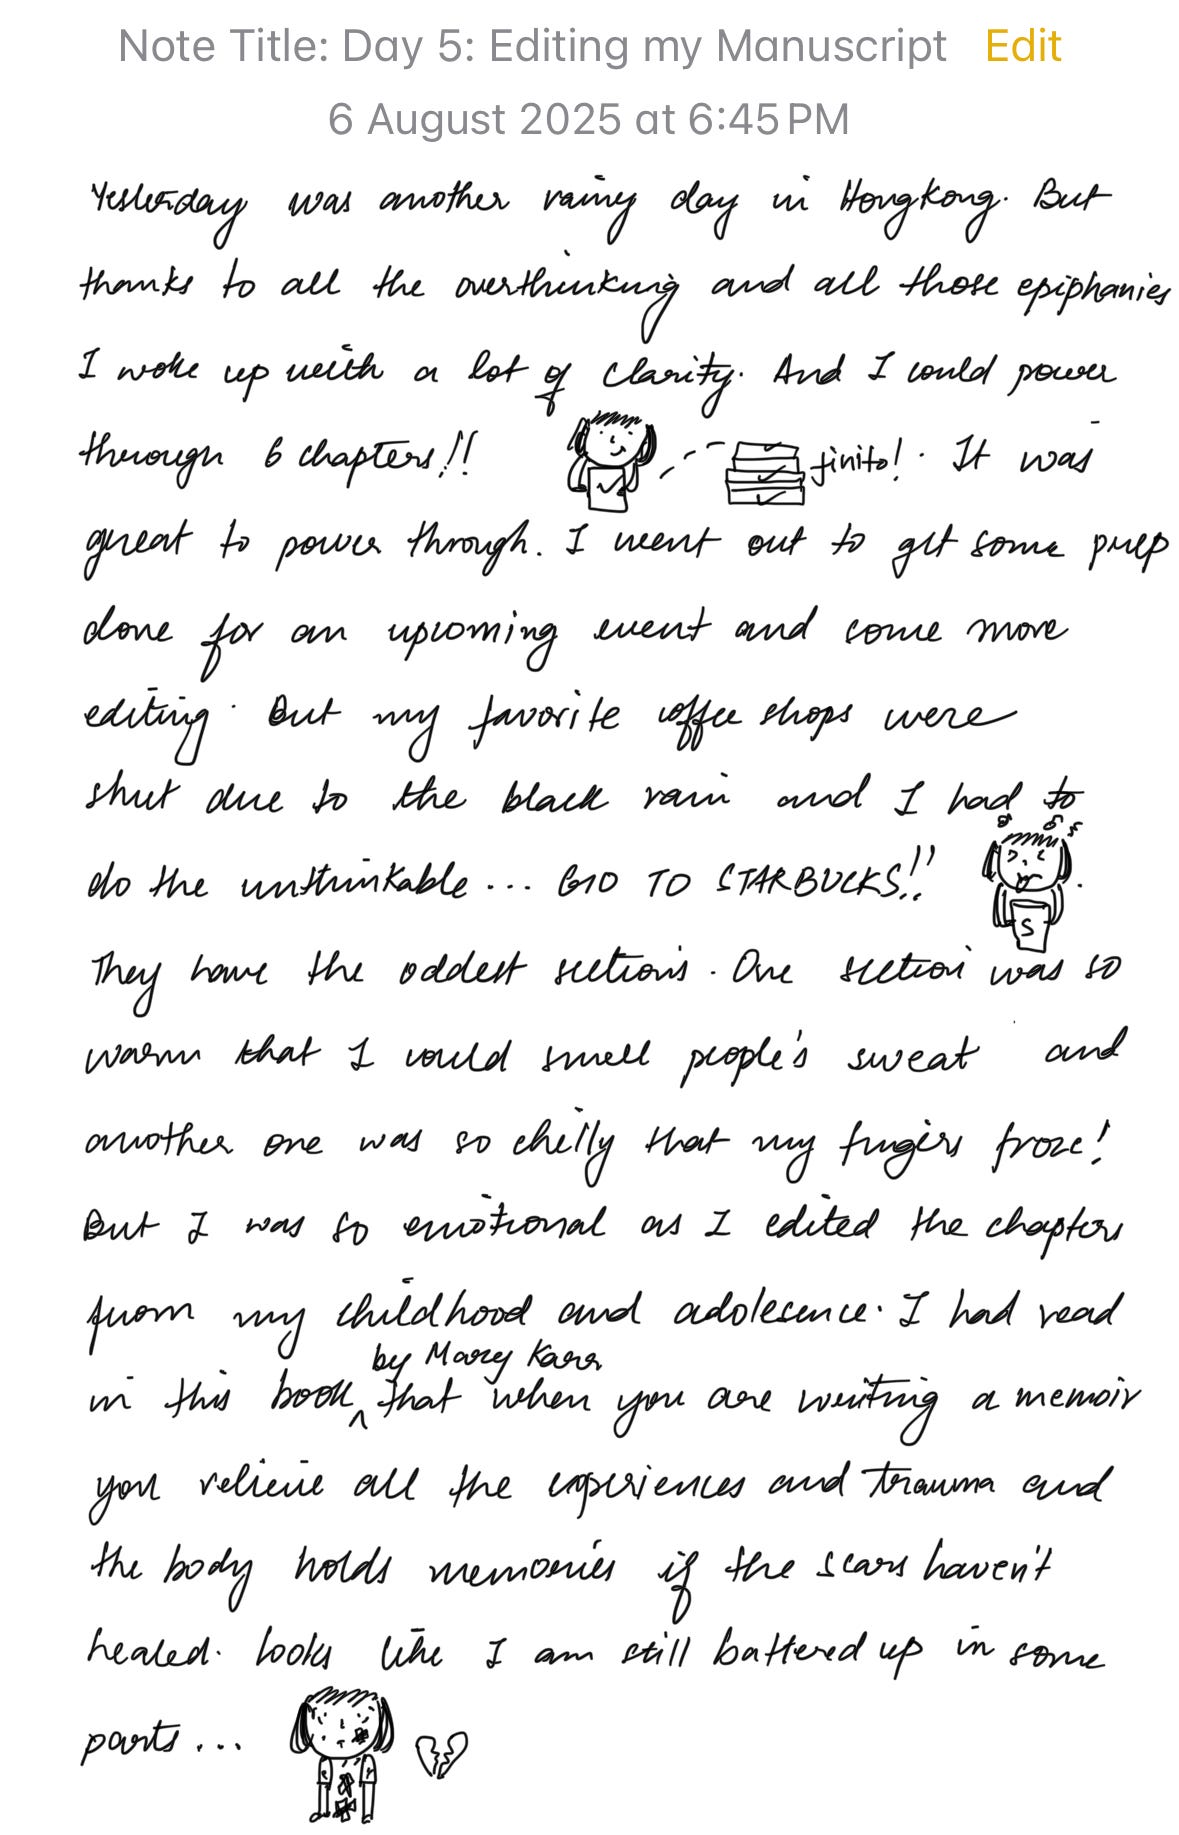 Note Title: Day 5: Editing my Manuscript Edit
6 August 2025 at 6:45 PM
Yesterday was another rainy day in Hongkong. But
thanks to all the overthinking and all those epiphanies
I woke up with a lot of clarity. And I could power
through 6 chapters!! finito!. It was
great to power through. I went out to get some prep
done for an upcoming event and some more
editing. But my favorite coffee shops were
shut due to the black rain and I had to
do the unthinkable... GO TO STARBUCKS!!
S
They have the oddest sections. One section was so
warm that I could smell people's sweat and
another one was so chilly that my fingers froze!
But I was so emotional as I edited the chapters
from my childhood and adolesence. I had read
by Mary Karr
in this book ^ that when you are writing a memoir
you relieve all the experiences and trauma and
the body holds memories if the scars haven't
healed. Looks like I am still battered up in some
parts...